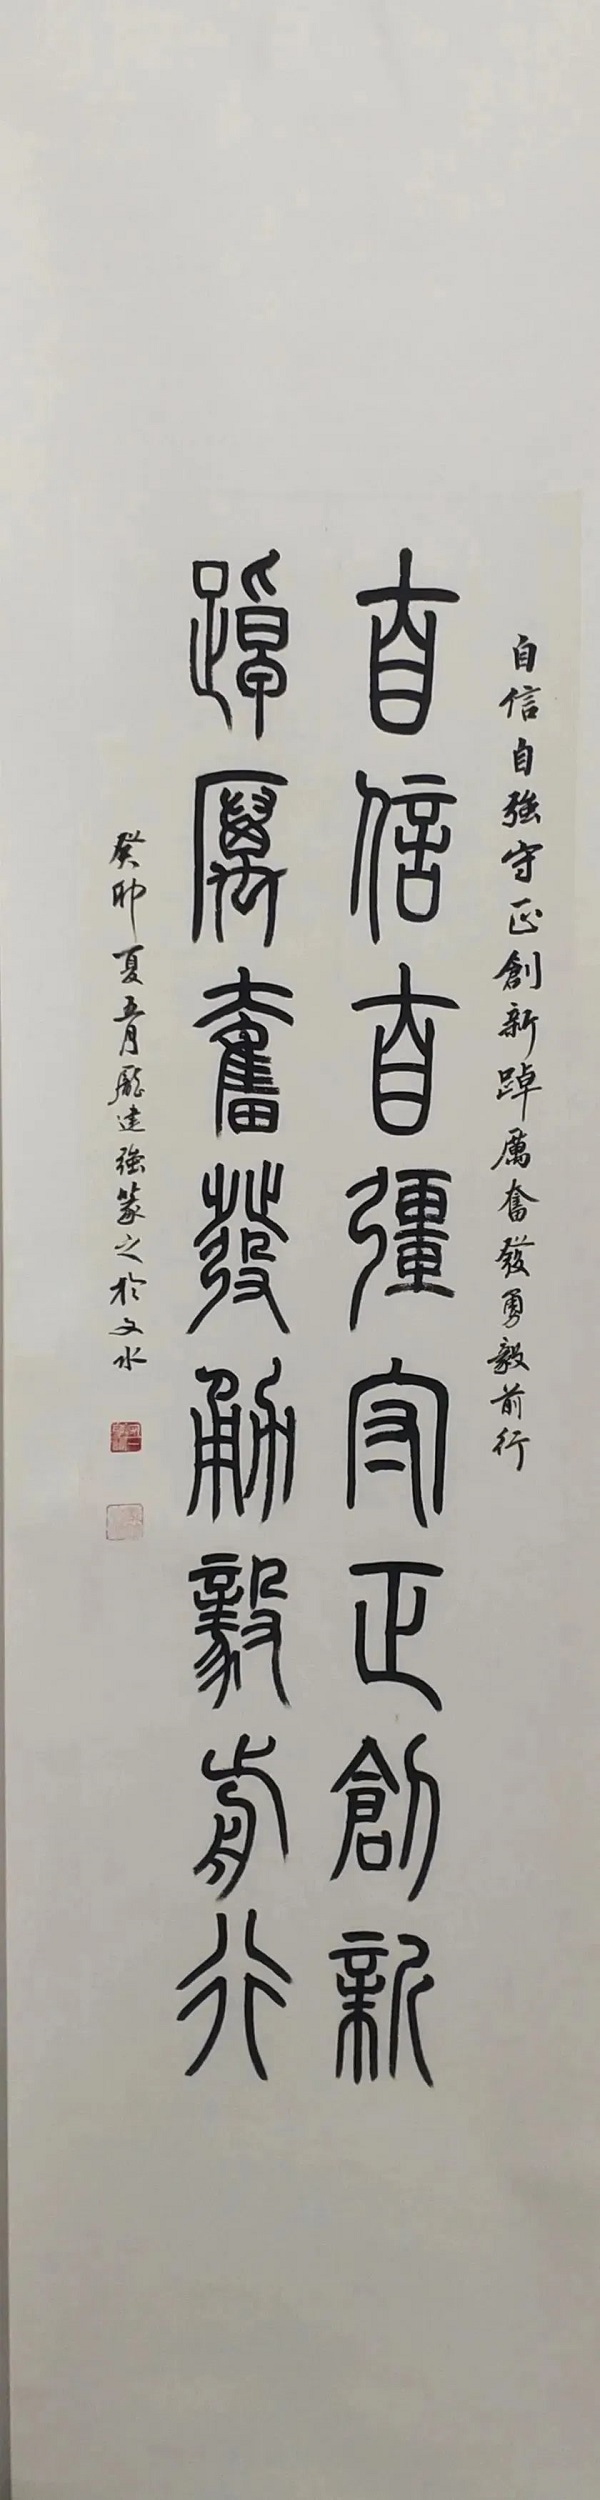 自信自強守正創新踔厲奮發勇毅前行
自信自彊守正創新
踔厲奮發勇毅前行
癸卯夏五月龐建強篆之於文水